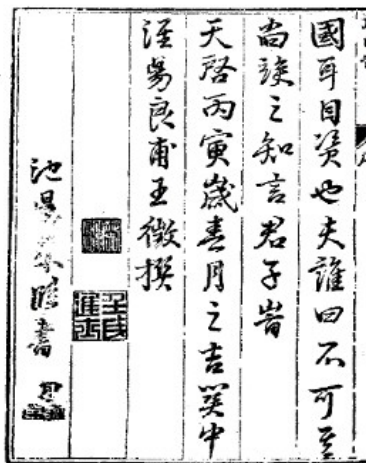 國耳目資也夫誰曰不可至
尚竢之知言君子旹
天啓丙寅歲春月之吉関中
涇昜良甫王徵撰
壬戌進士
池昜書